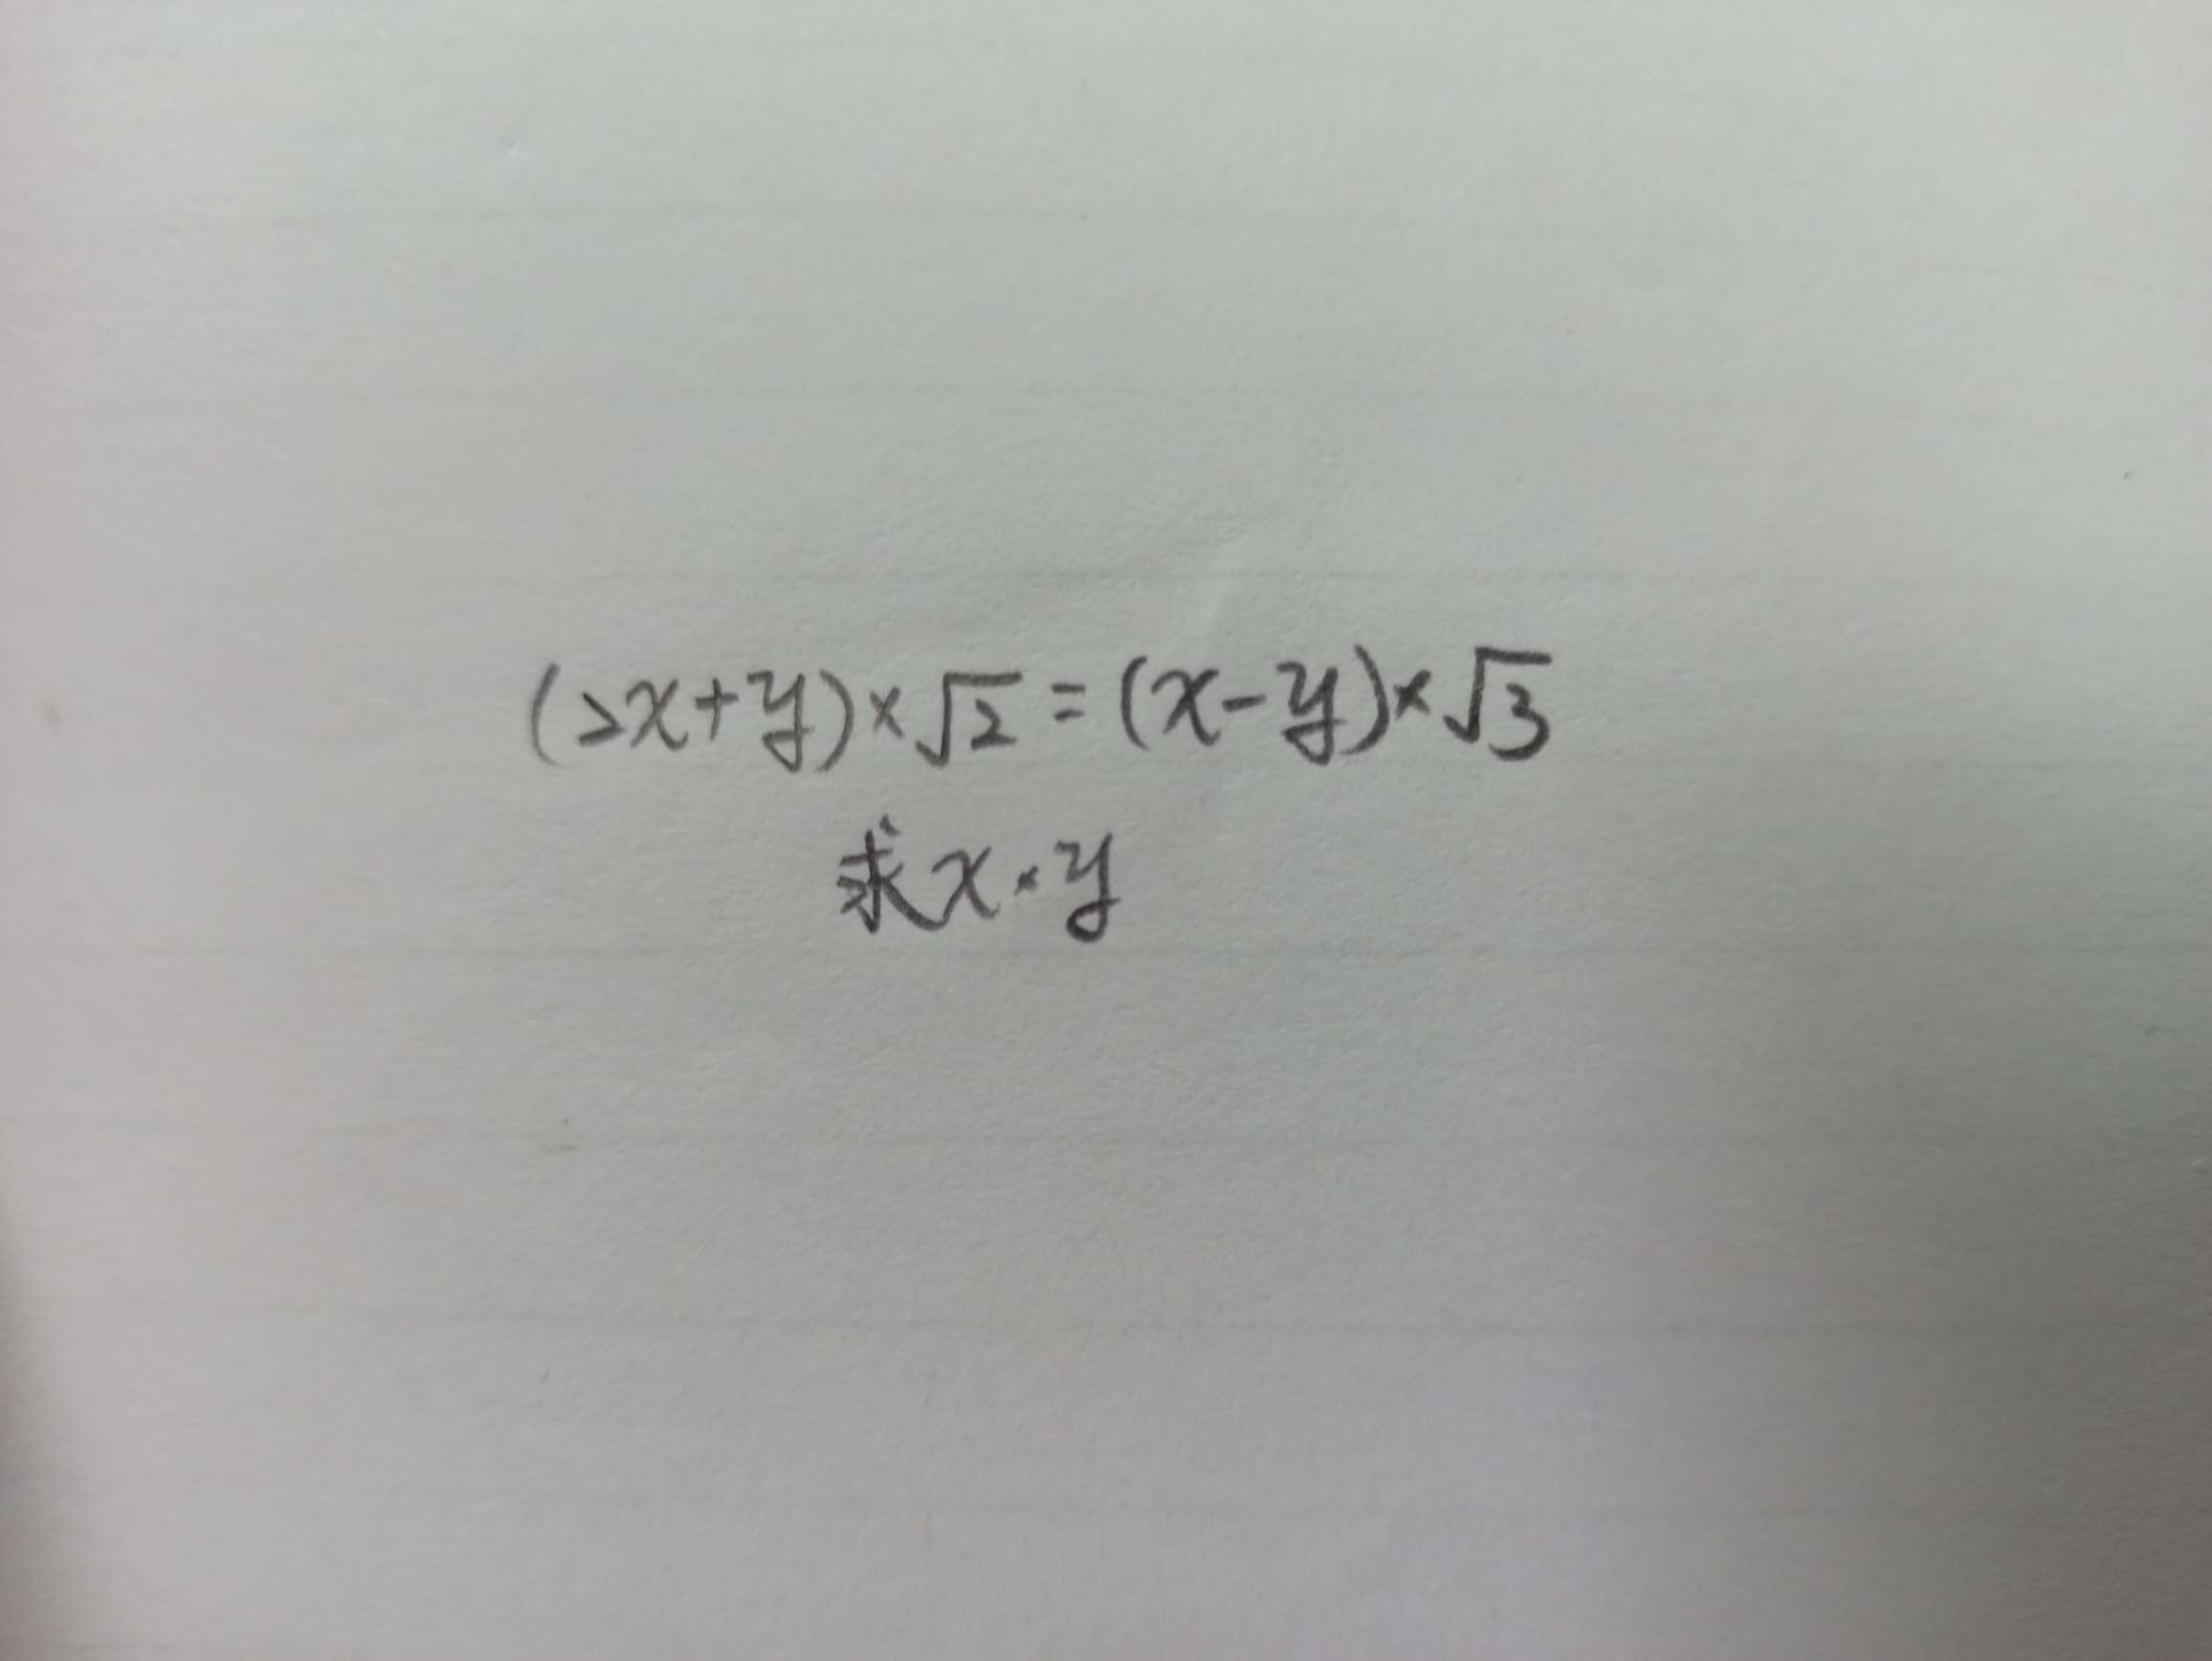 (2x+y)×√2=(x-y)×√3
求x·y